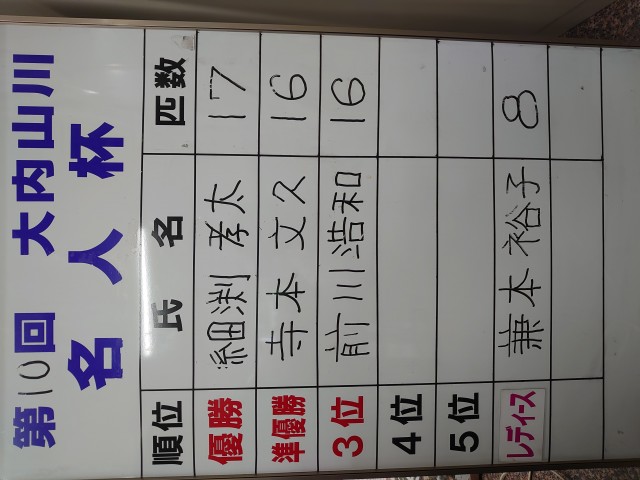 第10回 大内山川
名人杯
順位 氏名 匹数
優勝 細渕 孝太 17
準優勝 寺本 文久 16
3位 前川 浩和 16
4位
5位
レディース 兼本 裕子 8